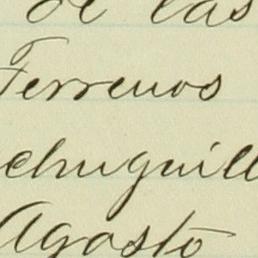 de las
Terrenos
echuguill
Agosto